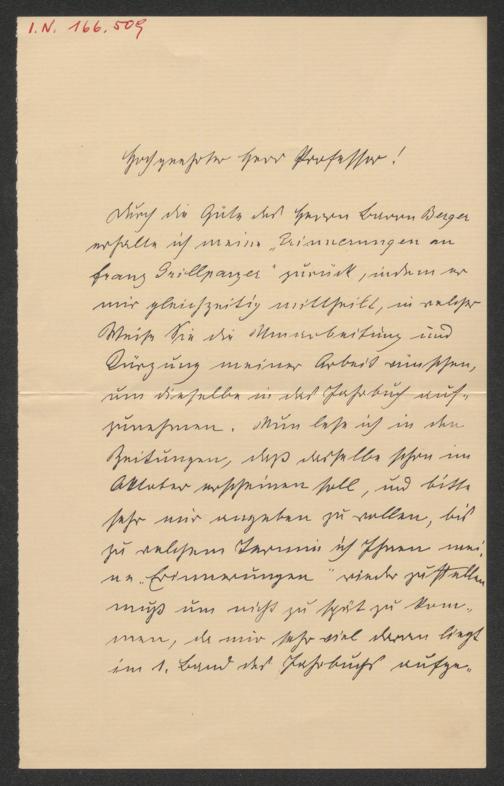 I.N. 166.509
Hochgeehrter Herr Professor!
Durch die Güte des Herrn Baron Berger
erhalte ich meine „Erinnerungen an
Franz Grillparzer" zurück, indem er
mir gleichzeitig mittheilt, in welcher
Weise Sie die Umarbeitung und
Kürzung meiner Arbeit wünschen,
um dieselbe in das Jahrbuch auf-
zunehmen. Nun lese ich in den
Zeitungen, daß dasselbe schon im
Oktober erscheinen soll, und bitte
sehr mir angeben zu wollen, bis
zu welchem Termin ich Ihnen mei-
ne „Erinnerungen" wieder zustellen
muß um nicht zu spät zu kom-
men, da mir sehr viel daran liegt
im 1. Band des Jahrbuchs aufge-